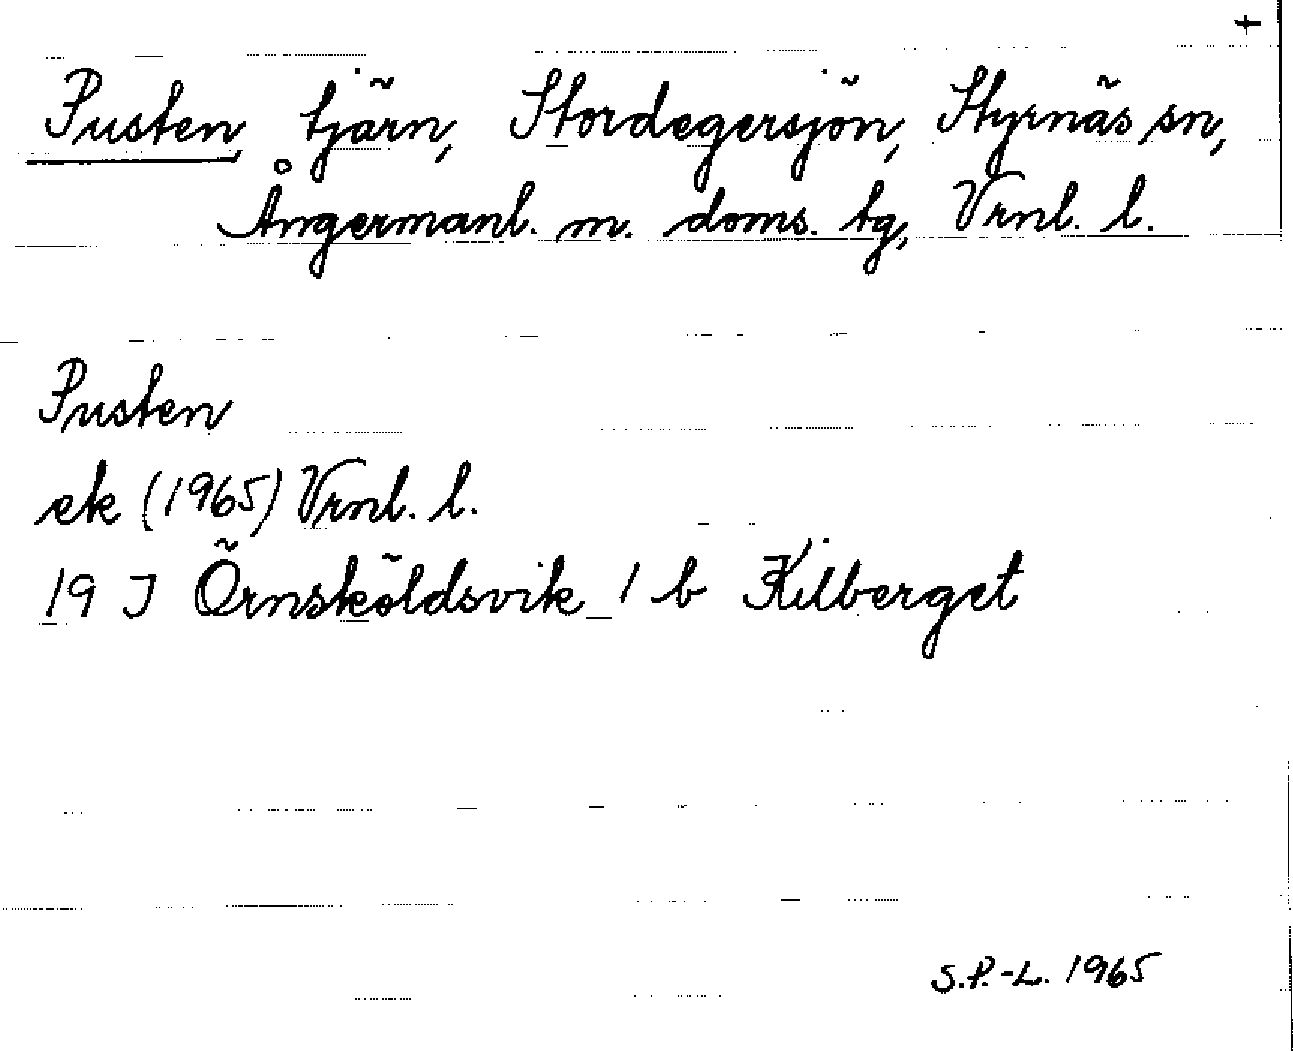 +
Pusten, tjärn, Stordegersjön, Styrnäs sn,
Ångermanl. m. doms. tg, Vrnl. l.
Pusten
ek (1965) Vrnl. l.
19 J Örnsköldsvik 1 b Kilberget
S.P.-L. 1965